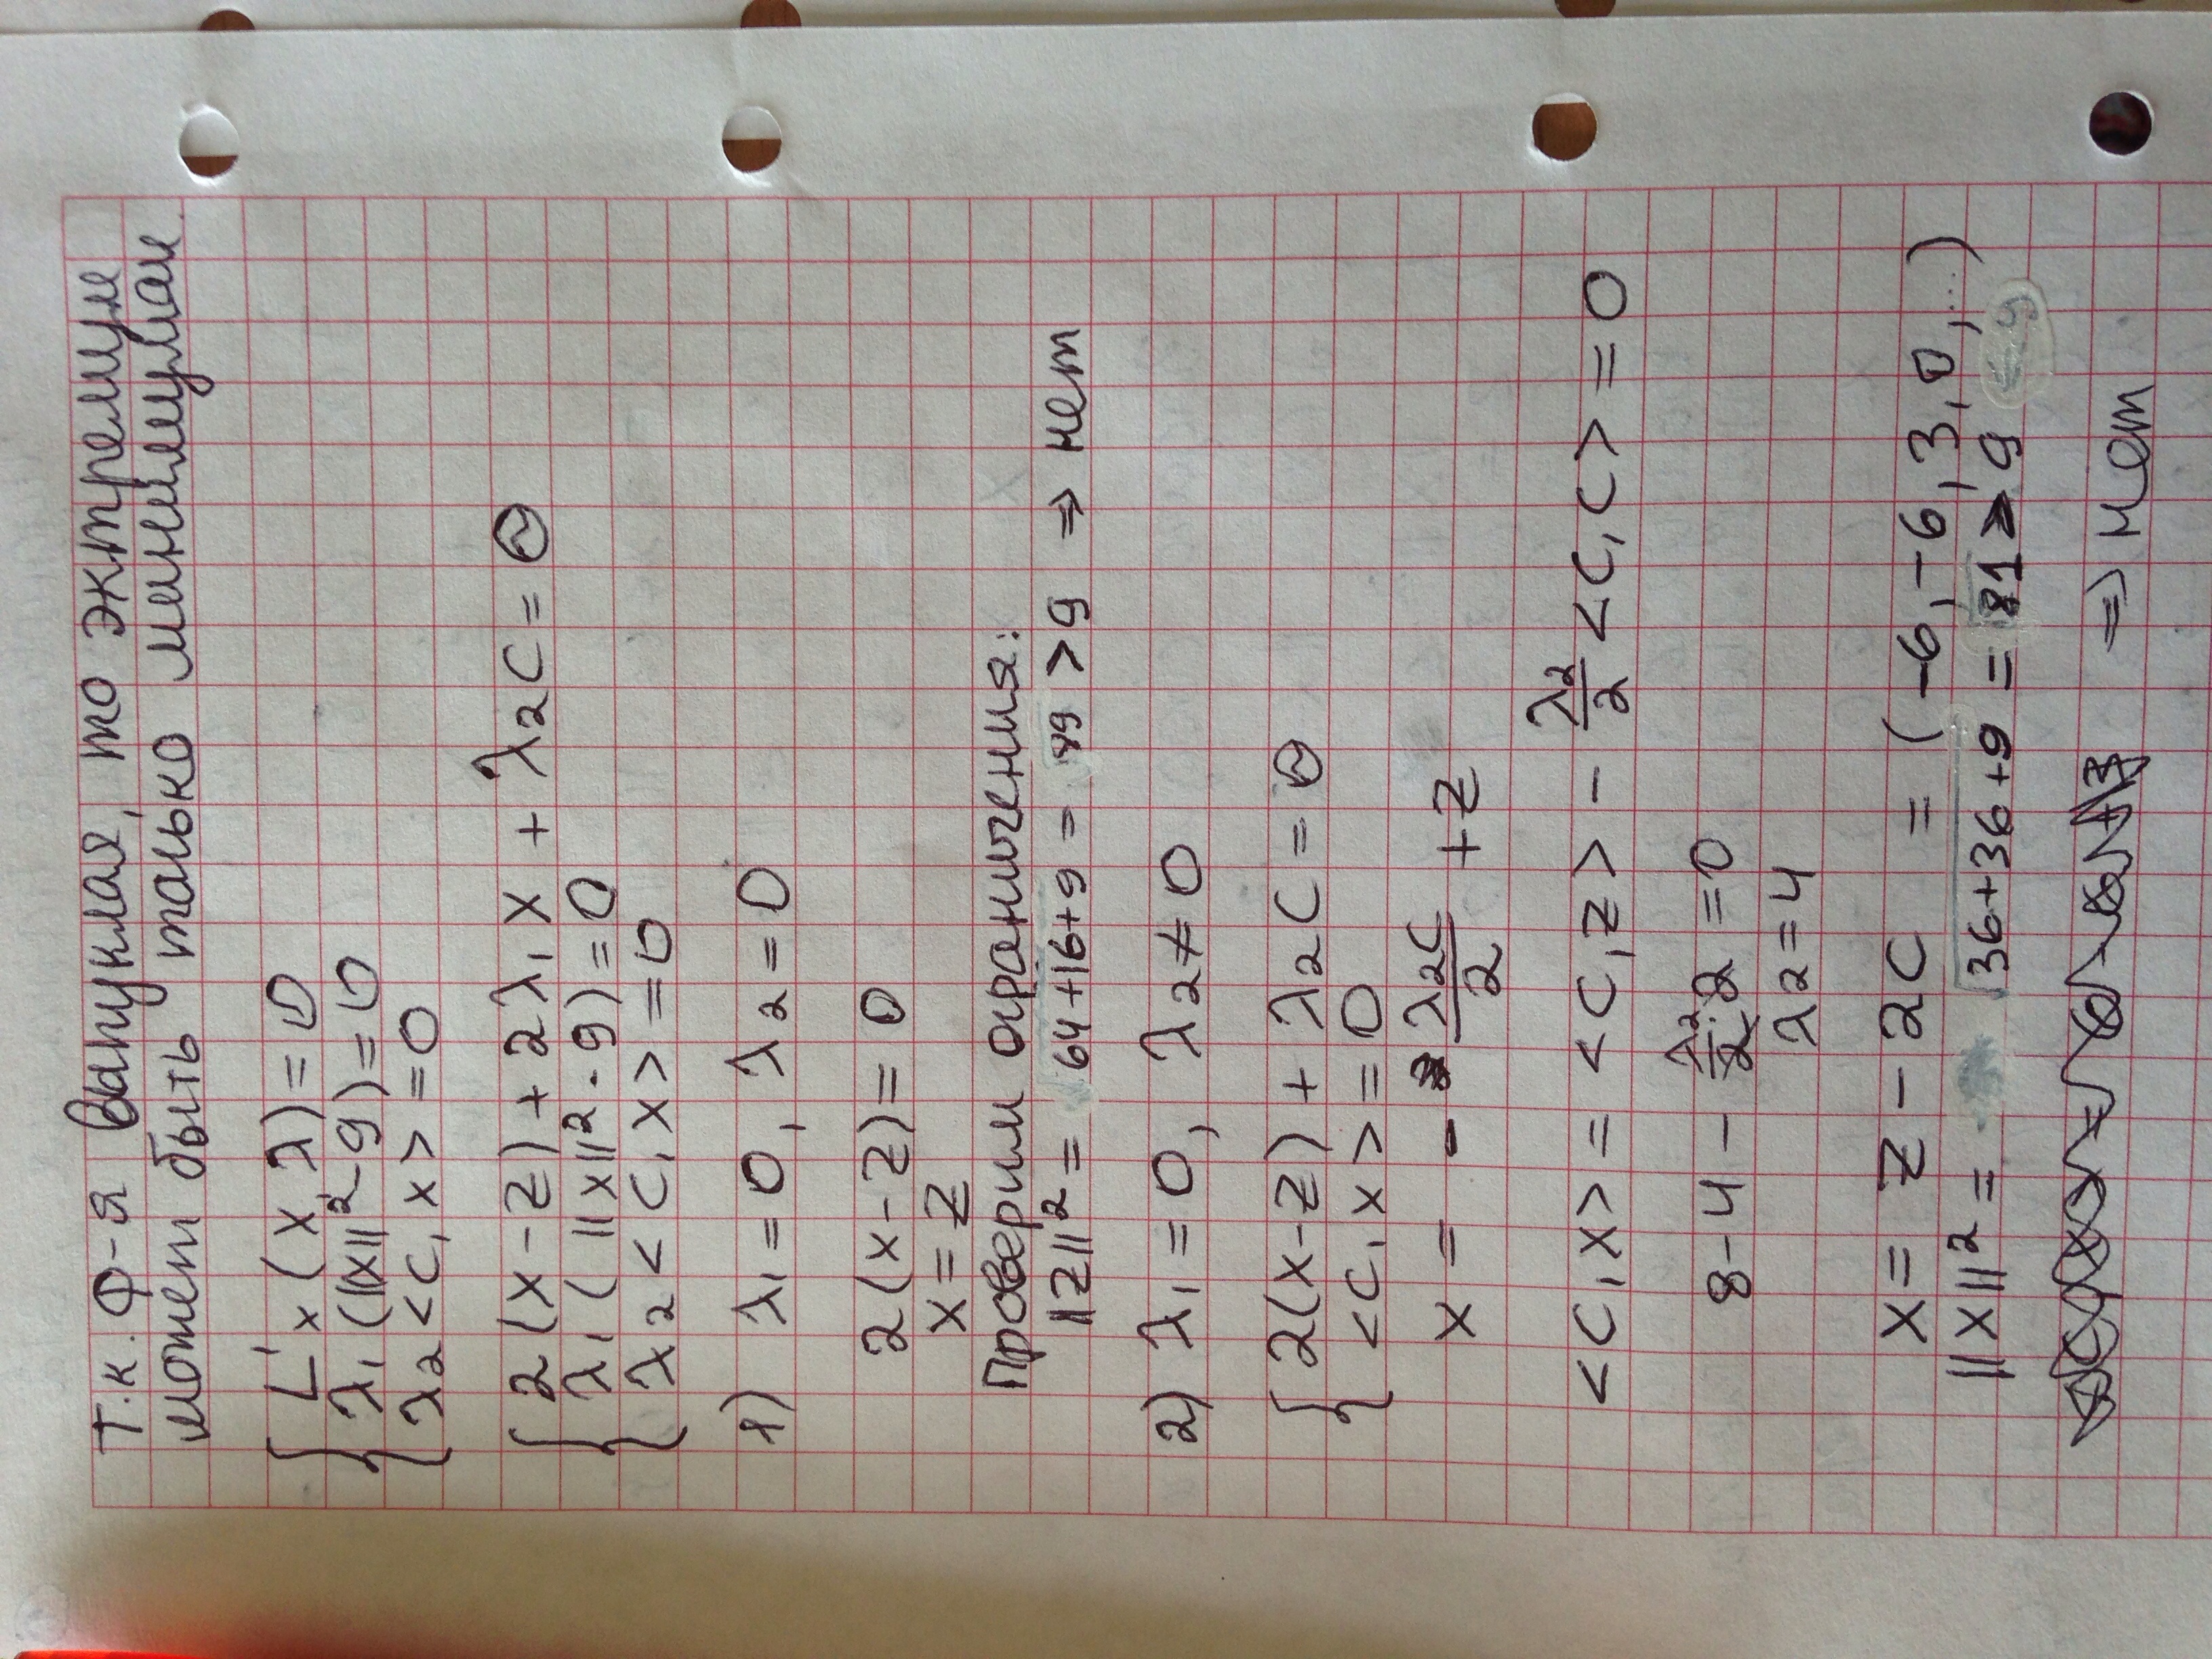 Т.к. Ф-я выпуклая, то эктремум
может быть только минимумам
{ L'x (x, λ) = 0
λ₁(||x||² - 9) = 0
λ₂ <c, x> = 0
{ 2(x-z) + 2λ₁x + λ₂c = Θ
λ₁(||x||² - 9) = 0
λ₂ <c, x> = 0
1) λ₁ = 0, λ₂ = 0
2(x-z) = Θ
x = z
Проверим ограничения:
||z||² = 64+16+9 = 89 > 9 ⇒ нет
2) λ₁ = 0, λ₂ ≠ 0
{ 2(x-z) + λ₂c = Θ
<c, x> = 0
x = - λ₂c/2 + z
<c, x> = <c, z> - λ₂/2 <c, c> = 0
8 - 4 - λ₂/2 · 2 = 0
λ₂ = 4
x = z - 2c = (-6, -6, 3, 0, ...)
||x||² = 36+36+9 = 81 > 9
⇒ нет